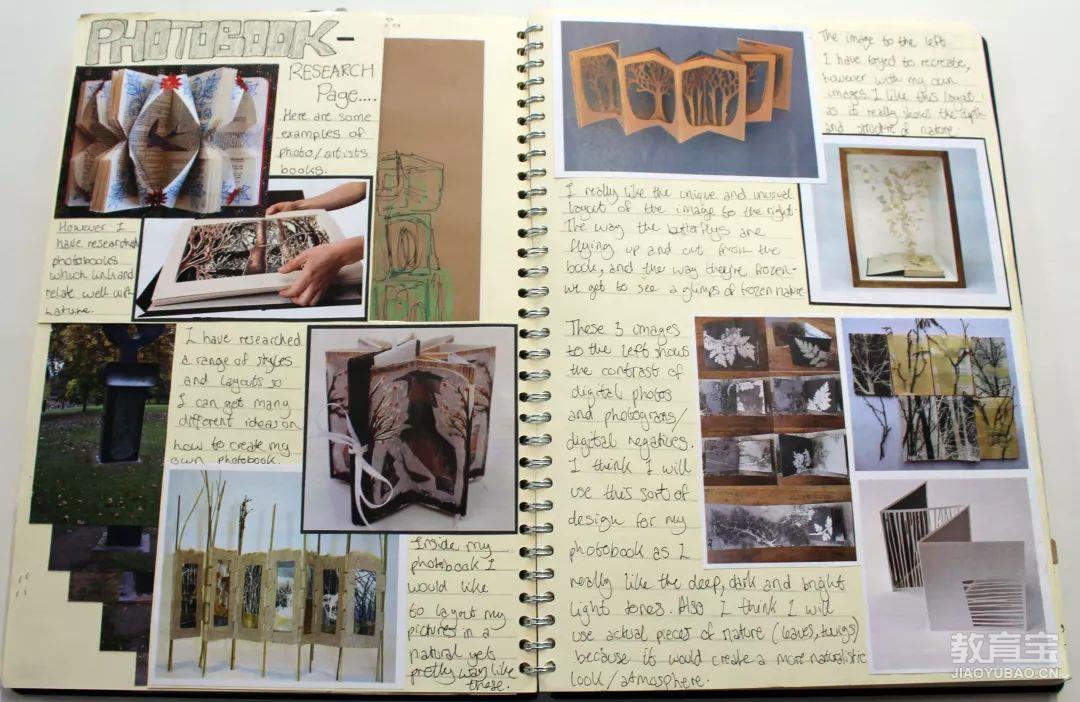 PHOTOBOOK-
RESEARCH
Page....
Here are some
examples of
photo/artists
books.
However I
have researched
photobooks
which link and
relate well with
nature.
I have researched
a range of styles
and layouts so
I can get many
different ideas on
how to create my
own photobook.
Inside my
photobook I
would like
to layout my
pictures in a
natural yet
pretty way like
these.
The image to the left
I have tryed to recreate,
however with my own
images. I like this layout
as it really shows the depth
and structure of nature
I really like the unique and unusual
layout of the image to the right.
The way the butterflys are
flying up and out from the
book, and the way they're frozen-
we get to see a glimps of frozen nature
These 3 images
to the left shows
the contrast of
digital photos
and photograms/
digital negatives.
I think I will
use this sort of
design for my
photobook as I
really like the deep, dark and bright
light tones. Also I think I will
use actual pieces of nature (leaves, twigs)
because it would create a more naturalistic
look/atmosphere.
教育宝
JIAOYUBAO.CN